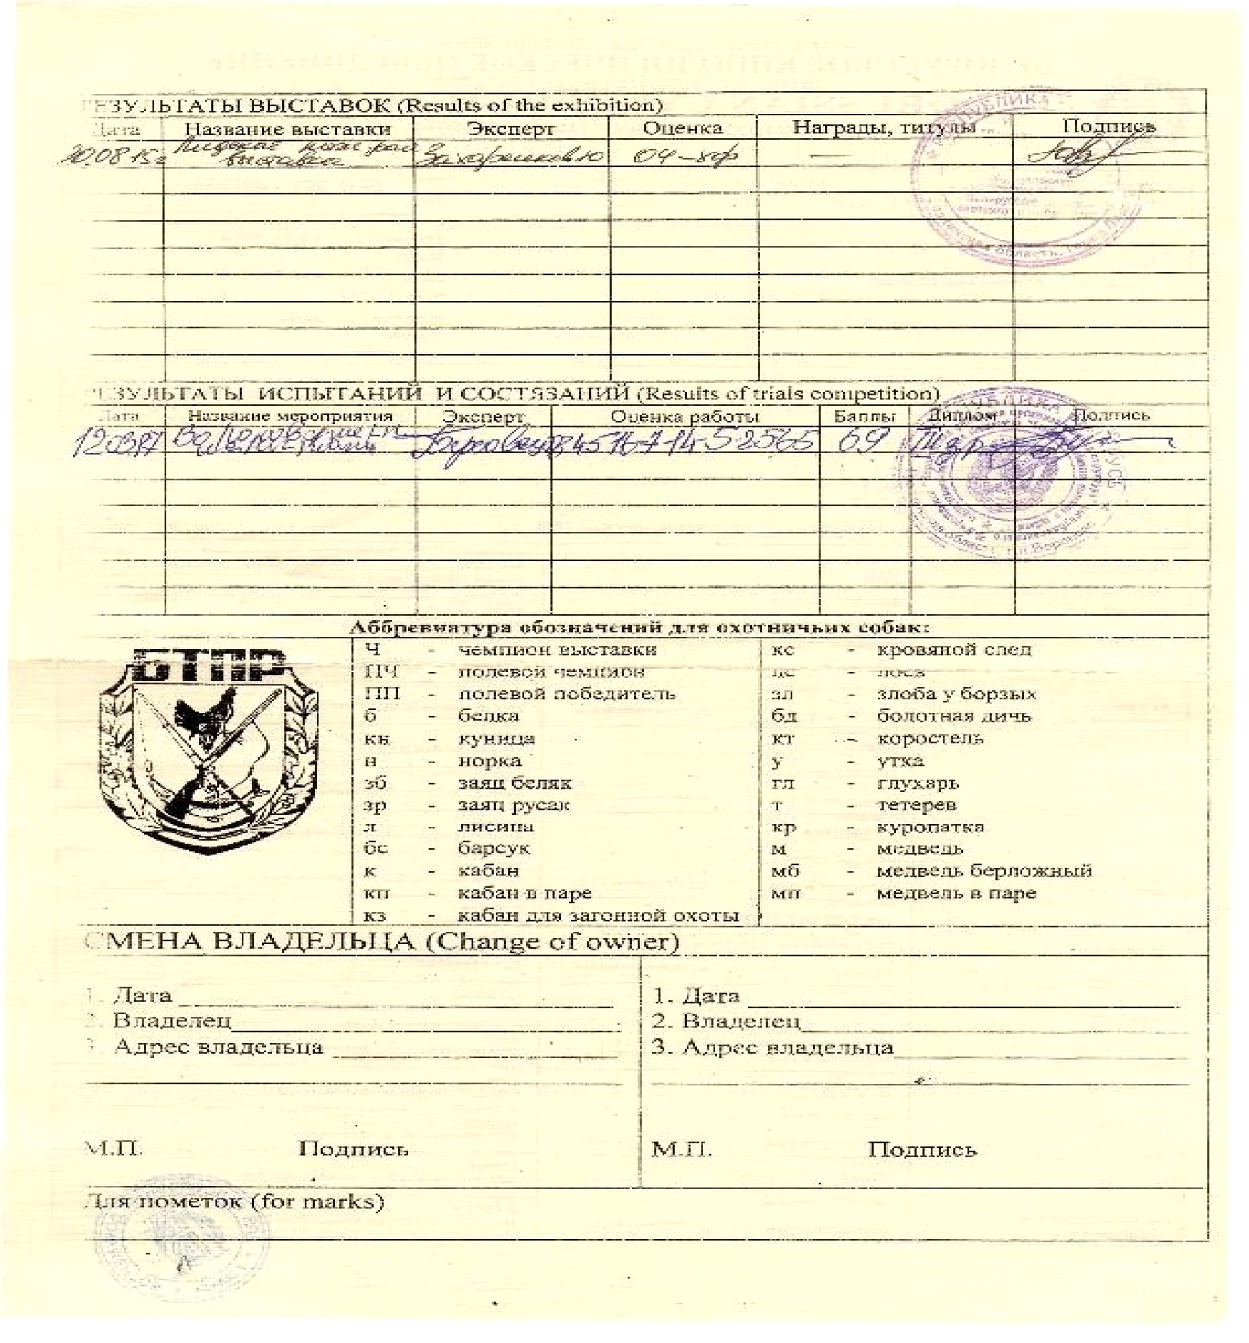 РЕЗУЛЬТАТЫ ВЫСТАВОК (Results of the exhibition)
Дата Название выставки Эксперт Оценка Награды, титулы Подпись
20.08.15г выставка Захаренков Ю 04-хор —
РЕЗУЛЬТАТЫ ИСПЫТАНИЙ И СОСТЯЗАНИЙ (Results of trials competition)
Дата Название мероприятия Эксперт Оценка работы Баллы Диплом Подпись
69
Аббревиатура обозначений для охотничьих собак:
БТПР
Ч - чемпион выставки кс - кровяной след
ПЧ - полевой чемпион лс - лось
ПП - полевой победитель зл - злоба у борзых
б - белка бд - болотная дичь
кн - куница кт - коростель
н - норка у - утка
зб - заяц беляк гл - глухарь
зр - заяц русак т - тетерев
л - лисица кр - куропатка
бс - барсук м - медведь
к - кабан мб - медведь берложный
кп - кабан в паре мп - медведь в паре
кз - кабан для загонной охоты
СМЕНА ВЛАДЕЛЬЦА (Change of owner)
1. Дата 1. Дата
2. Владелец 2. Владелец
3. Адрес владельца 3. Адрес владельца
М.П. Подпись М.П. Подпись
Для пометок (for marks)